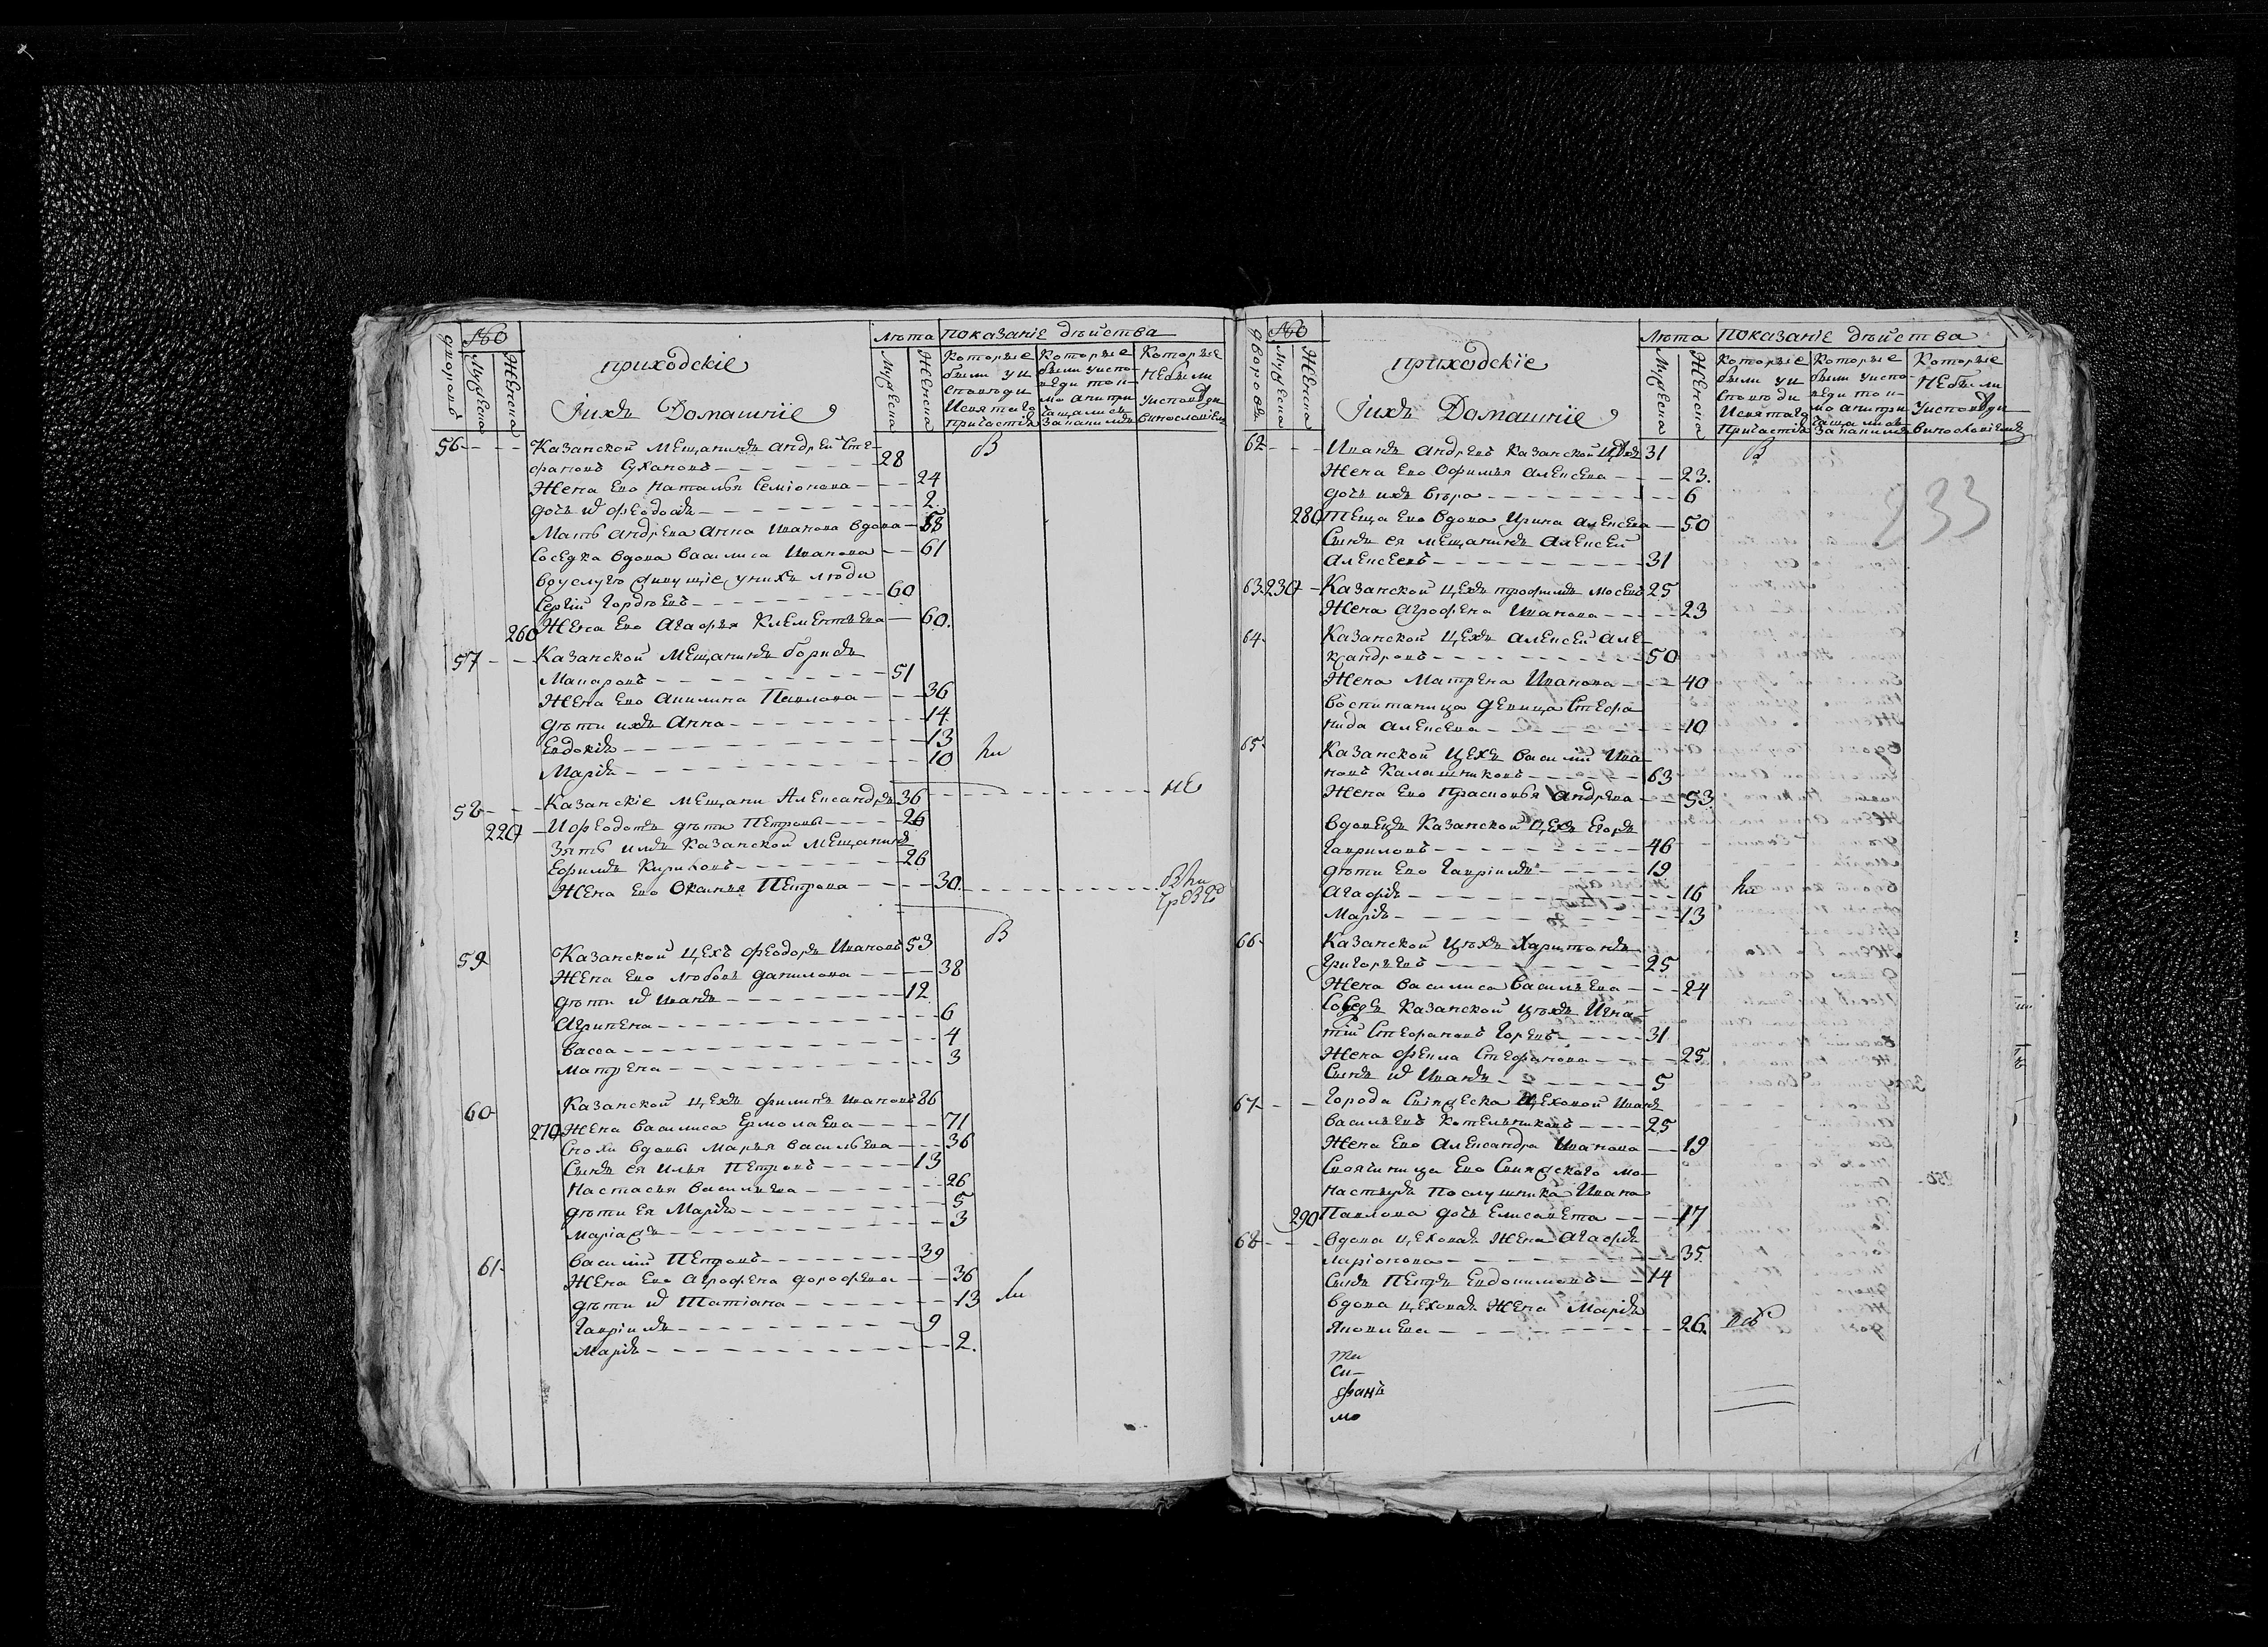 №
Лѣта показаніе дѣйства
дворовъ
Мужеска
Женска
приходскіе
Мужеска
Женска
Которые были у исповѣди и святаго причастія
Которые были у исповѣди токмо а не причащались
Которые не были у исповѣди
Іихъ Домашніе
56 Казанской мещанинъ андрей Сте-
фановъ Сухановъ 28
В
Жена Ево Наталья Семіонова 24
дочь их феодосія 2
Мать андрева Анна Иванова вдова 58
Соседка вдова василиса Иванова 61
вдуслугъ живущіе у нихъ люди
Сергій Гордѣевъ 60
260 Жена Ево Агафья Клементьева 60
57 Казанской Мещанинъ борисъ
Макаровъ 51
Жена Ево Акилина Павлова 36
дѣти ихъ Анна 14
Евдокія 13
Марія 10
58 Казанскіе мещани Александръ 36
не
220 И феодотъ дѣти Петровы 26
Зять имъ Казанской Мещанинъ
Ефимъ Кириловъ 26
Жена Ево Ксенья Петрова 30
59 Казанской цехъ феодоръ Ивановъ 53
В
Жена Ево любовь данилова 38
дѣти их Иванъ 12
Агрипена 6
васса 4
матрена 3
60 Казанской цехъ филипъ Ивановъ 86
270 Жена василиса Ермолаева 71
Снохи вдовы марья васильева 36
Сынъ ея илья Петровъ 13
Настасья васильева 26
дѣти ея Марія 5
Марія 3
61 василій Петровъ 39
Жена Ево Аграфена дорофева 36
дѣти их Татіана 13
Гавріилъ 9
Марія 2
№
Лѣта показаніе дѣйства
дворовъ
Мужеска
Женска
приходскіе
Мужеска
Женска
Которые были у исповѣди и святаго причастія
Которые были у исповѣди токмо а не причащались
Которые не были у исповѣди
Іихъ Домашніе
62 Иванъ андревъ Казанской Цехъ 31
В
Жена Ево Офимья алексева 23
дочь ихъ вѣра 6
233
280 Теща Ево вдова Ирина алексева 50
Сынъ ея мещанинъ Алексей
алексеевъ 31
63 230 Казанской цехъ трофимъ Мосевъ 25
Жена Аграфена Иванова 23
64 Казанской цехъ алексей але-
ксандровъ 50
Жена Матрена Иванова 40
воспитаница девица Стефа-
нида алексева 10
65 Казанской цехъ василій Ива-
новъ Калашниковъ 63
Жена Ево Прасковья андрева 53
вдовецъ Казанской цехъ Егоръ
Гавриловъ 46
дѣти Ево Гавріилъ 19
Агафія 16
Марія 13
66 Казанской цѣхъ Харитонъ
Григорьевъ 25
Жена василиса васильева 24
Соседъ Казанской цѣхъ Игна-
тій Стефановъ Горевъ 31
Жена фекла Стефанова 25
Сынъ их Иванъ 5
67 Города Свіяжска Цеховой Иванъ
васильевъ Котельниковъ 25
Жена Ево Александра Иванова 19
Своячиница Ево Свияжскаго мо-
настыря послушника Ивана
290 Павлова дочь Елисавета 17
68 вдова цеховая Жена Агафія
ларіонова 35
Сынъ Петръ Евдокимовъ 14
вдова цеховая Жена Марія
Яковлева 26
Си-
фанъ
мо